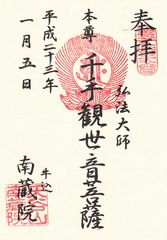 奉拝
弘法大師
本尊 千手観世音菩薩
平成二十三年
一月五日
牛込
南蔵院